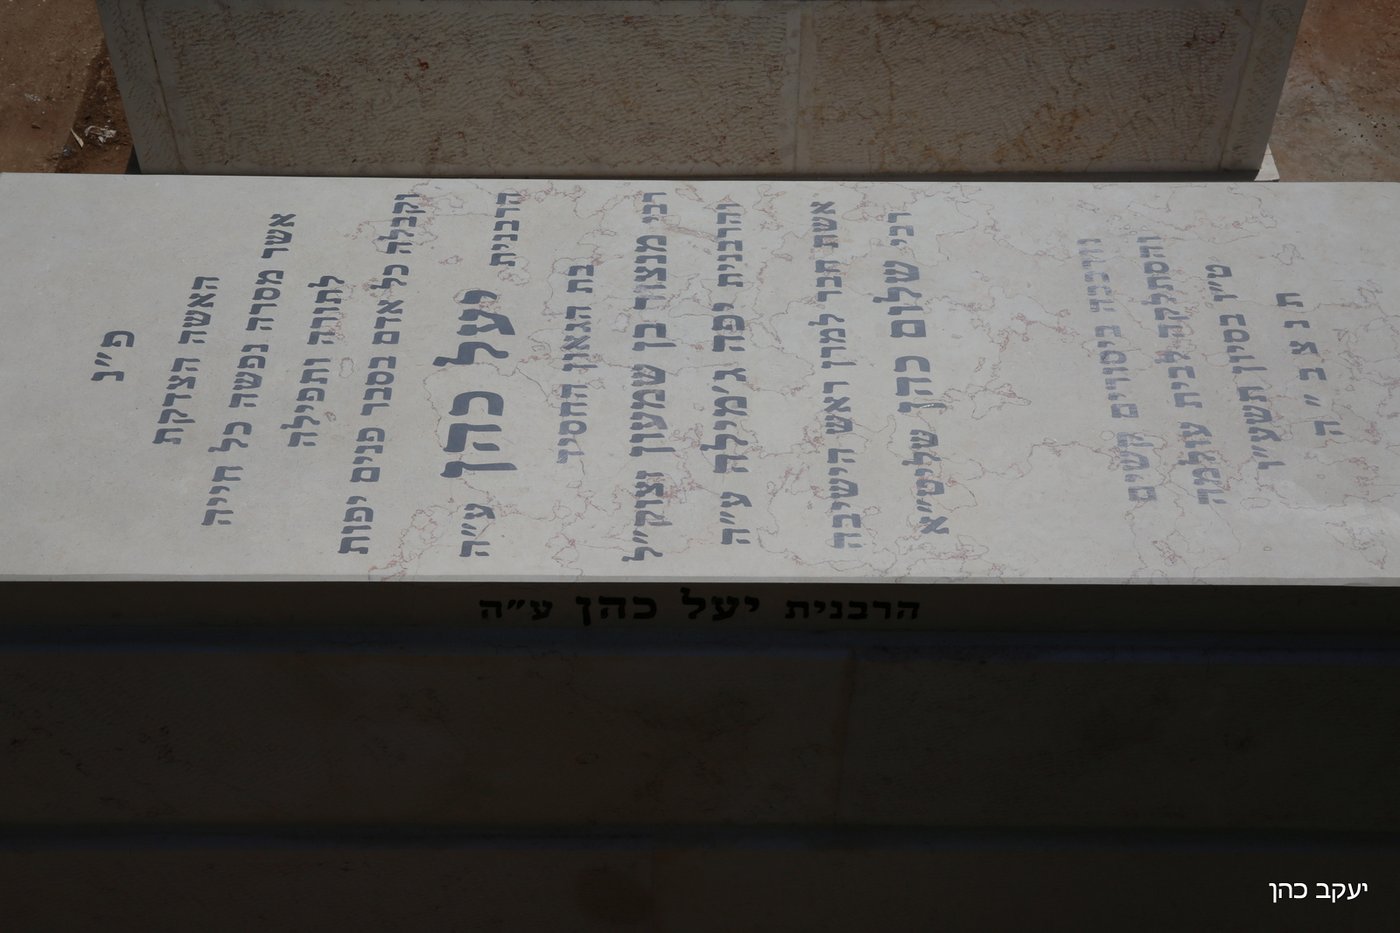 פ״נ
האשה הצדקת
אשר מסרה נפשה כל חייה
לתורה ותפילה
וקבלה כל אדם בסבר פנים יפות
הרבנית יעל כהן ע״ה
בת הגאון החסיד
רבי מנצור בן שמעון זצוק״ל
והרבנית יפה ג׳מילה ע״ה
אשת חבר למרן ראש הישיבה
רבי שלום כהן שליט״א
נזדככה ביסורים קשים
והסתלקה לבית עולמה
ט״ו בסיון תשע״ו
ת נ צ ב ״ ה
הרבנית יעל כהן ע״ה
יעקב כהן